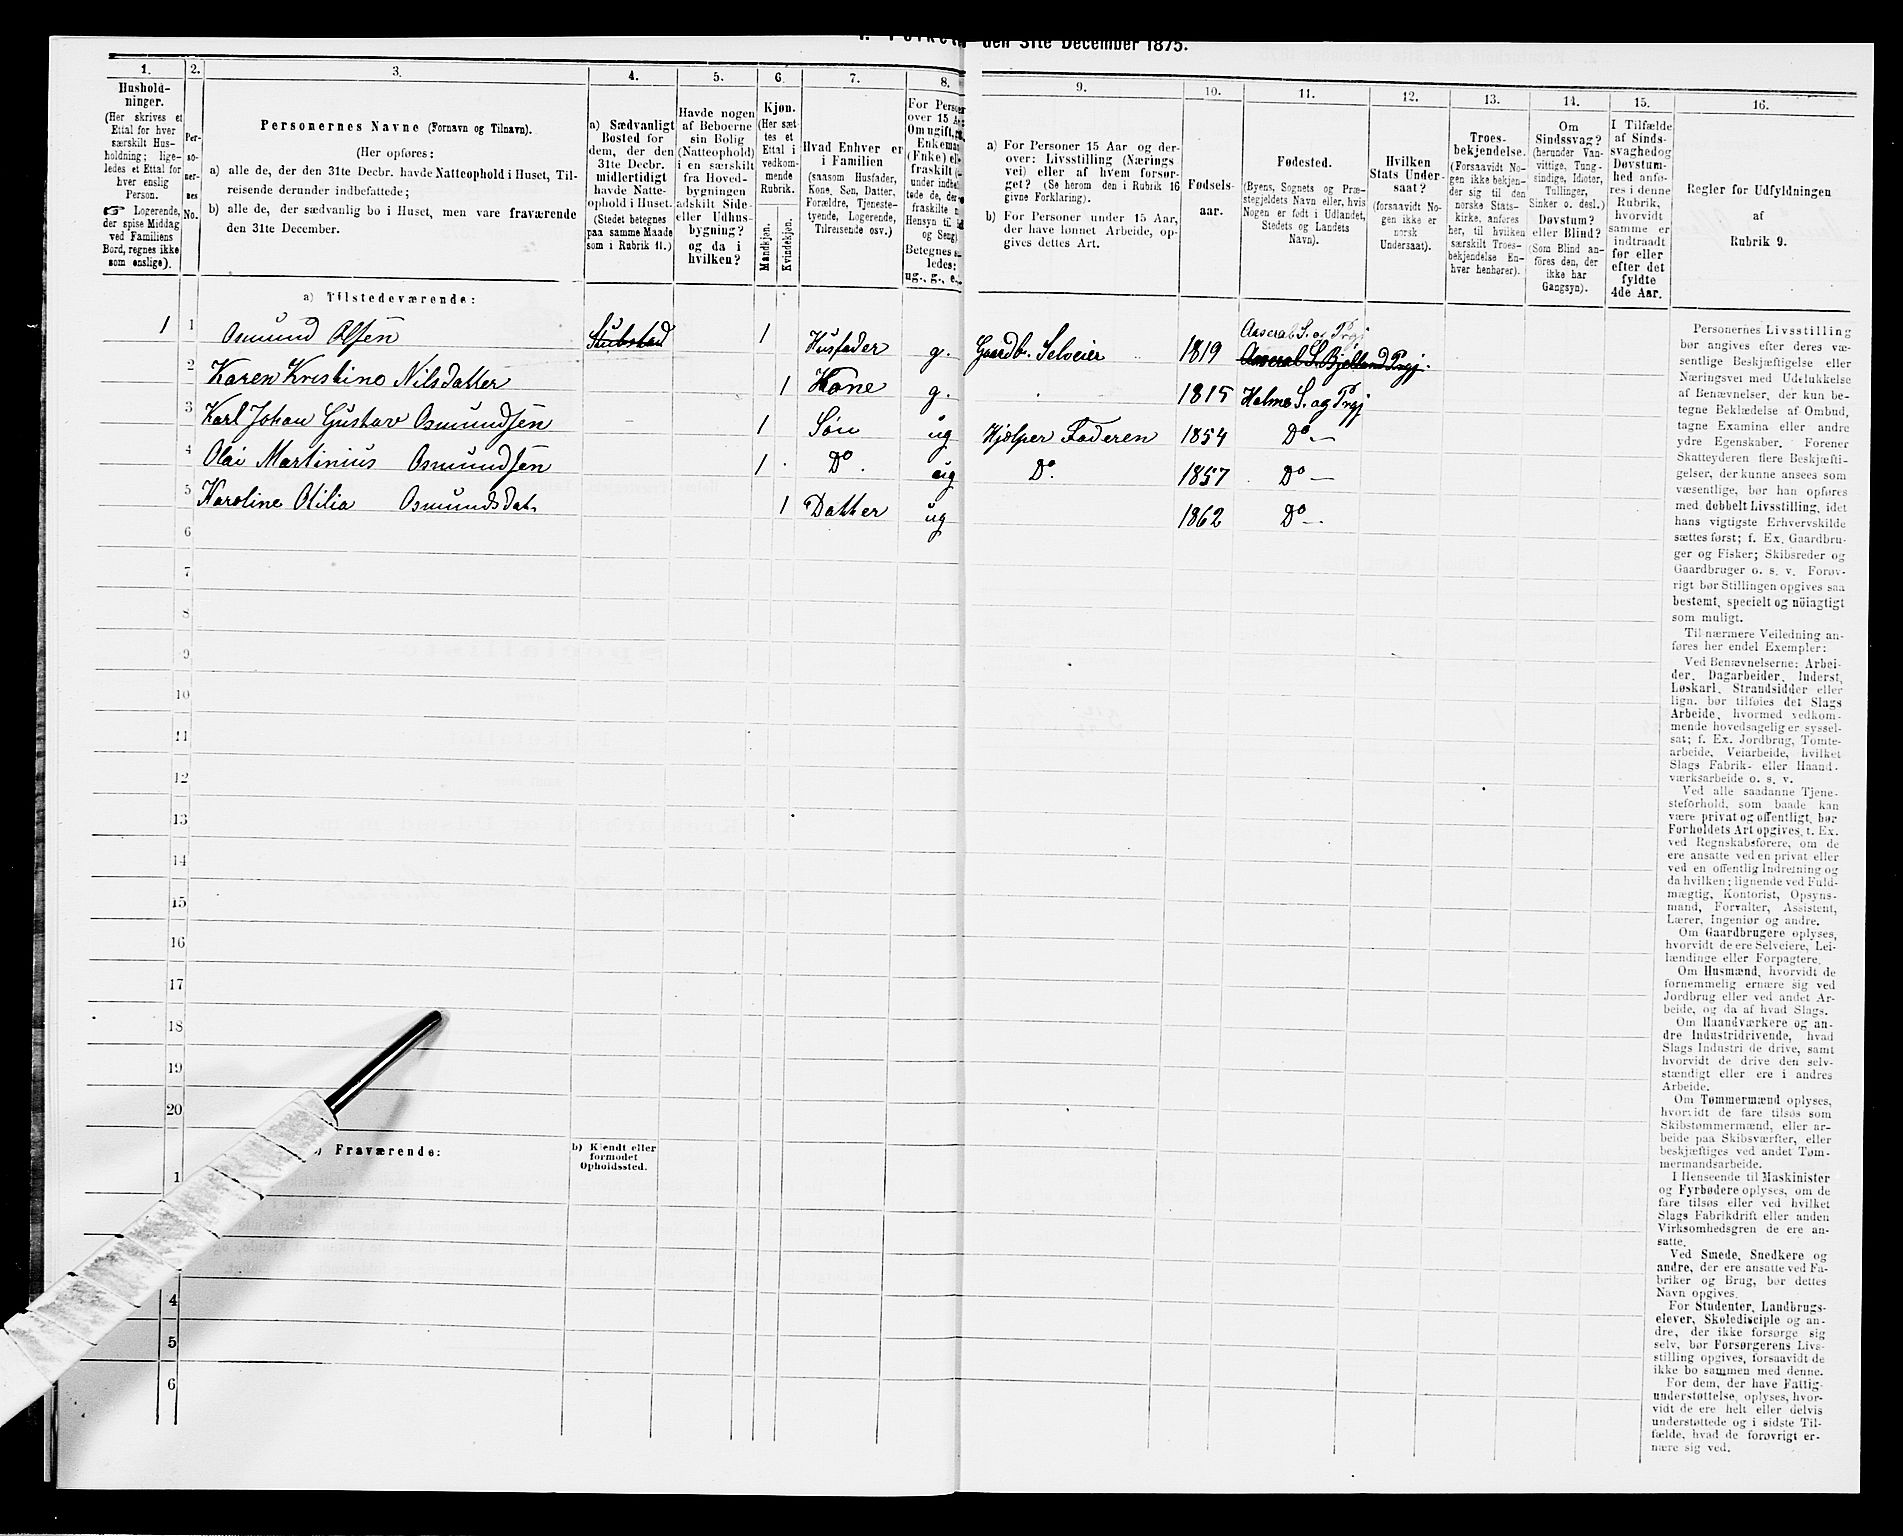 den 31te December 1875.
1.
2.
3.
4.
5.
6.
7.
8.
9.
10.
11.
12.
13.
14.
15.
16.
Hushold-
ninger.
(Her skrives et
Ettal for hver
særskilt Hus-
holdning; lige-
ledes et Ettal for
hver enslig
Person.
☞ Logerende,
der spise Middag
ved Familiens
Bord, regnes ikke
som enslige).
Per-
so-
ner-
nes
No.
Personernes Navne (Fornavn og Tilnavn).
(Her opføres:
a) alle de, der den 31te Decbr. havde Natteophold i Huset, Til-
reisende derunder indbefattede;
b) alle de, der sædvanlig bo i Huset, men vare fraværende
den 31te December.
a) Sædvanligt
Bosted for
dem, der den
31te Decbr.
midlertidigt
havde Natte-
ophold i Huset.
(Stedet betegnes
paa samme Maade
som i Rubrik 11.)
Havde nogen
af Beboerne
sin Bolig
(Natteophold)
i en særskilt
fra Hoved-
bygningen
adskilt Side-
eller Udhus-
bygning?
og da i
hvilken?
Kjøn.
(Her sæt
tes et
Ettal i
vedkom-
mende
Rubrik.
Mandkjøn.
Kvindekjøn.
Hvad Enhver er
i Familien
(saasom Husfader,
Kone, Søn, Datter,
Forældre, Tjeneste-
tyende, Logerende,
Tilreisende osv.)
For Person
over 15 A
Om ugift,
Enkema
(Enke) ell
fraskilt
under indbe
tede de, der
fraskilte
Hensyn til
og Seng)
Betegnes s
ledes:
ug., g., e.,
a) For Personer 15 Aar og der-
over: Livsstilling (Nærings
vei) eller af hvem forsør-
get? (Se herom den i Rubrik 16
givne Forklaring).
b) For Personer under 15 Aar,
der have lønnet Arbeide, op-
gives dettes Art.
Fødsels-
aar.
Fødested.
(Byens, Sognets og Præ-
stegjeldets Navn, eller, hvis
Nogen er født i Udlandet,
Stedets og Landets
Navn).
Hvilken
Stats Under-
saat?
(forsaavidt No-
gen ikke er
norsk
Undersaat).
Troes-
bekjendelse.
(Forsaavidt No-
gen ikke bekjen-
der sig til den
norske Stats-
kirke, anføres
her, til hvilken
særskilt Troes-
bekjendelse En-
hver henhører).
Om
Sindssvag?
(herunder Van-
vittige, Tung-
sindige, Idioter,
Tullinger,
Sinker o. desl.)
Døvstum?
eller Blind?
(Som Blind an-
føres den, der
ikke har
Gangsyn).
I Tilfælde
af Sinds-
svaghed og
Døvstum-
hed anfø-
res i denne
Rubrik,
hvorvidt
samme er
indtraadt
før eller
efter det
fyldte
4de Aar.
Regler for Udfyldningen
af
Rubrik 9.
a) Tilstedeværende:
1 1 Osmund Olsen Stubstad 1 Husfader g. Gaardb. Selveier 1819 Aaseral S. og Prgj
Aaseral S. Bjelland Prgj.
2 Karen Kristine Nilsdatter 1 Kone g. 1815 Holme S. og Prgj
3 Karl Johan Gustav Osmundsen 1 Søn ug Hjælper Faderen 1854 Do —
4 Olai Martinius Osmundsen 1 Do ug Do. 1857 Do —
5 Karoline Otilia Osmundsdat. 1 Datter ug 1862 Do —
6
7
8
9
10
11
12
13
14
15
16
17
18
19
20
Fraværende:
b) Kjendt eller
formodet
Opholdssted.
1
4
5
6
Personernes Livsstilling
bør angives efter deres væ-
sentlige Beskjæftigelse eller
Næringsvei med Udelukkelse
af Benævnelser, der kun be-
tegne Beklædelse af Ombud,
tagne Examina eller andre
ydre Egenskaber. Forener
Skatteyderen flere Beskjæfti-
gelser, der kunne ansees som
væsentlige, bør han opføres
med dobbelt Livsstilling, idet
hans vigtigste Erhvervskilde
sættes først; f. Ex. Gaardbru-
ger og Fisker; Skibsreder og
Gaardbruger o. s. v. Forøv-
rigt bør Stillingen opgives saa
bestemt, specielt og nöiagtigt
som muligt.
Til nærmere Veiledning an-
føres her endel Exempler:
Ved Benævnelserne: Arbei-
der, Dagarbeider, Inderst,
Løskarl, Strandsidder eller
lign. bør tilføies det Slags
Arbeide, hvormed vedkom-
mende hovedsagelig er syssel-
sat; f. Ex. Jordbrug, Tomte-
arbeide, Veiarbeide, hvilket
Slags Fabrik- eller Haand-
værksarbeide o. s. v.
Ved alle saadanne Tjene-
steforhold, som baade kan
være privat og offentligt, bør
Forholdets Art opgives, t. Ex.
ved Regnskabsførere, om de
ere ansatte ved en privat eller
ved en offentlig Indretning og
da hvilken; lignende ved Fuld-
mægtig, Kontorist, Opsyns-
mand, Forvalter, Assistent,
Lærer, Ingeniør og andre.
Om Gaardbrugere oplyses,
hvorvidt de ere Selveiere, Lei-
lændinge eller Forpagtere.
Om Husmænd, hvorvidt de
fornemmelig ernære sig ved
Jordbrug eller ved andet Ar-
beide, og da af hvad Slags.
Om Haandværkere og an-
dre Industridrivende, hvad
Slags Industri de drive, samt
hvorvidt de drive den selv-
stændigt eller ere i andres
Arbeide.
Om Tømmermænd oplyses,
hvorvidt de fare tilsøs som
Skibstømmermænd, eller ar-
beide paa Skibsværfter, eller
beskjæftiges ved andet Tøm-
mermandsarbeide.
I Henseende til Maskinister
og Fyrbødere oplyses, om de
fare tilsøs eller ved hvilket
Slags Fabrikdrift eller anden
Virksomhedsgren de ere an-
satte.
Ved Smede, Snedkere og
andre, der ere ansatte ved Fa-
briker og Brug, bør dettes
Navn opgives.
For Studenter, Landbrugs-
elever, Skoledisciple og an-
dre, der ikke forsørge sig
selv, bør Forsørgerens Livs-
stilling opgives, forsaavidt de
ikke bo sammen med denne.
For dem, der have Fattig-
understøttelse, oplyses, hvor-
vidt de ere helt eller delvis
understøttede og i sidste Til-
fælde, hvad de forøvrigt er-
nære sig ved.